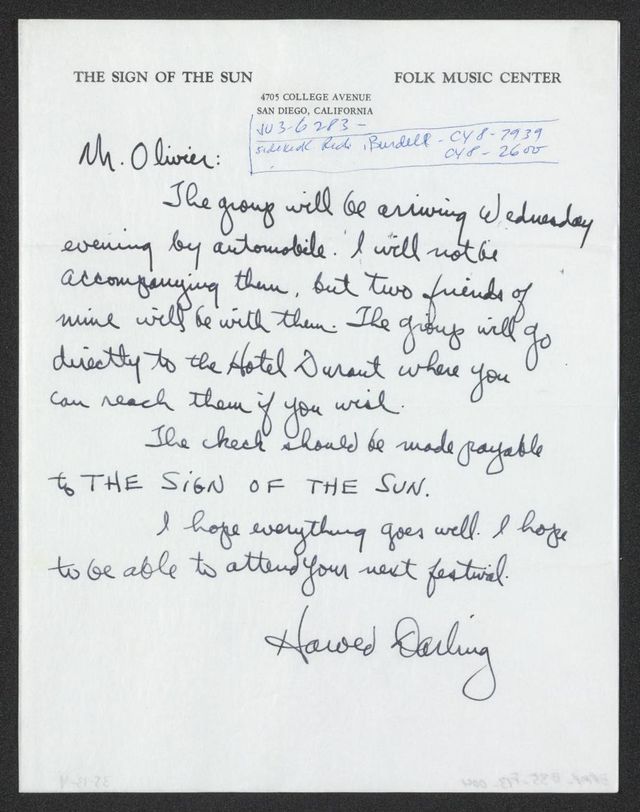 THE SIGN OF THE SUN FOLK MUSIC CENTER
4705 COLLEGE AVENUE
SAN DIEGO, CALIFORNIA
JU3-6283-
Burdell - CY8-7939
CY8-2600
Mr. Olivier:
The group will be arriving Wednesday
evening by automobile. I will not be
accompanying them, but two friends of
mine will be with them. The group will go
directly to the Hotel Durant where you
can reach them if you wish.
The check should be made payable
to THE SIGN OF THE SUN.
I hope everything goes well. I hope
to be able to attend your next festival.
Darling